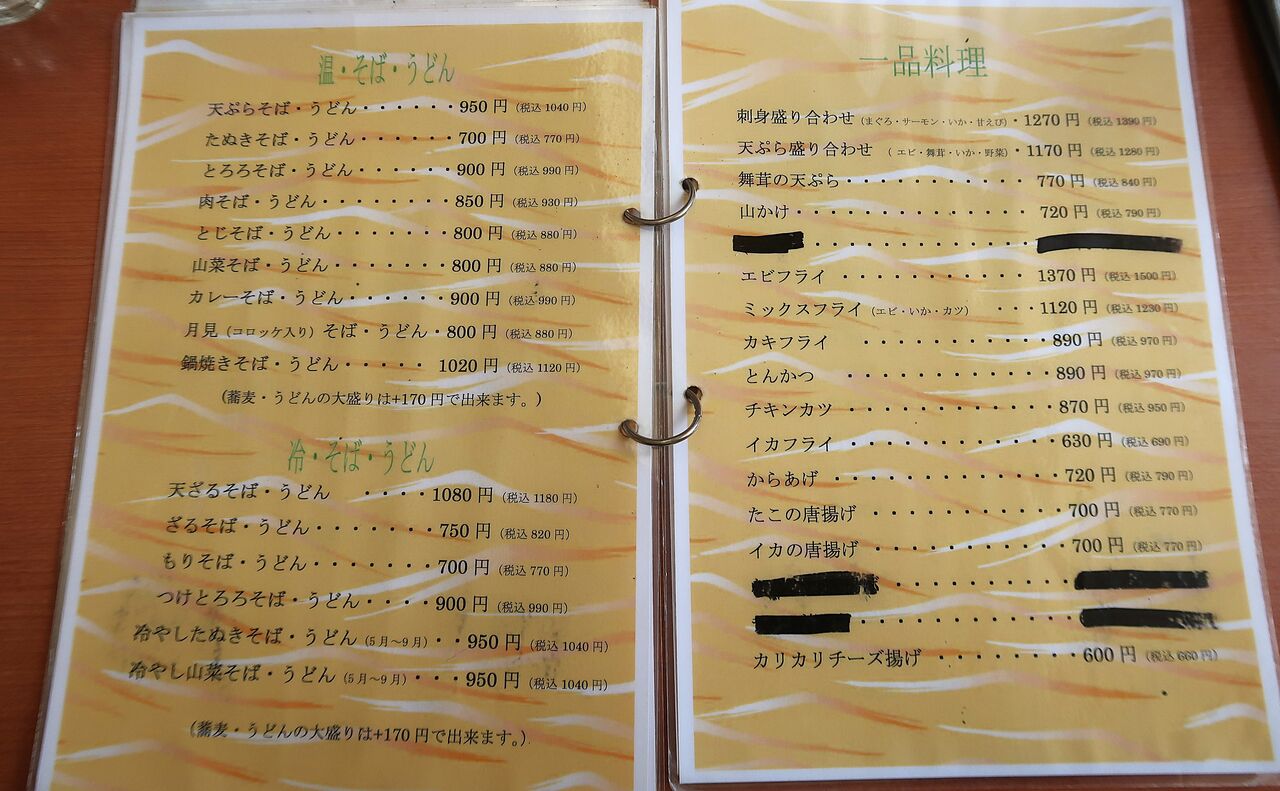 温・そば・うどん
天ぷらそば・うどん・・・・・・・950円（税込1040円）
たぬきそば・うどん・・・・・・・700円（税込770円）
とろろそば・うどん・・・・・・・900円（税込990円）
肉そば・うどん・・・・・・・・・850円（税込930円）
とじそば・うどん・・・・・・・・800円（税込880円）
山菜そば・うどん・・・・・・・・800円（税込880円）
カレーそば・うどん・・・・・・・900円（税込990円）
月見（コロッケ入り）そば・うどん・800円（税込880円）
鍋焼きそば・うどん・・・・・・1020円（税込1120円）
（蕎麦・うどんの大盛りは+170円で出来ます。）
冷・そば・うどん
天ざるそば・うどん ・・・・・1080円（税込1180円）
ざるそば・うどん・・・・・・・・750円（税込820円）
もりそば・うどん・・・・・・・・700円（税込770円）
つけとろろそば・うどん・・・・・900円（税込990円）
冷やしたぬきそば・うどん（5月～9月）・・950円（税込1040円）
冷やし山菜そば・うどん（5月～9月）・・・950円（税込1040円）
（蕎麦・うどんの大盛りは+170円で出来ます。）
一品料理
刺身盛り合わせ（まぐろ・サーモン・いか・甘えび）・1270円（税込1390円）
天ぷら盛り合わせ（エビ・舞茸・いか・野菜）・1170円（税込1280円）
舞茸の天ぷら・・・・・・・・・・・・770円（税込840円）
山かけ・・・・・・・・・・・・・・・720円（税込790円）
エビフライ ・・・・・・・・・・・1370円（税込1500円）
ミックスフライ（エビ・いか・カツ） ・・・1120円（税込1230円）
カキフライ ・・・・・・・・・・・890円（税込970円）
とんかつ ・・・・・・・・・・・・890円（税込970円）
チキンカツ ・・・・・・・・・・・・870円（税込950円）
イカフライ ・・・・・・・・・・・・630円（税込690円）
からあげ ・・・・・・・・・・・・・720円（税込790円）
たこの唐揚げ ・・・・・・・・・・・700円（税込770円）
イカの唐揚げ ・・・・・・・・・・・700円（税込770円）
カリカリチーズ揚げ ・・・・・・・・600円（税込660円）